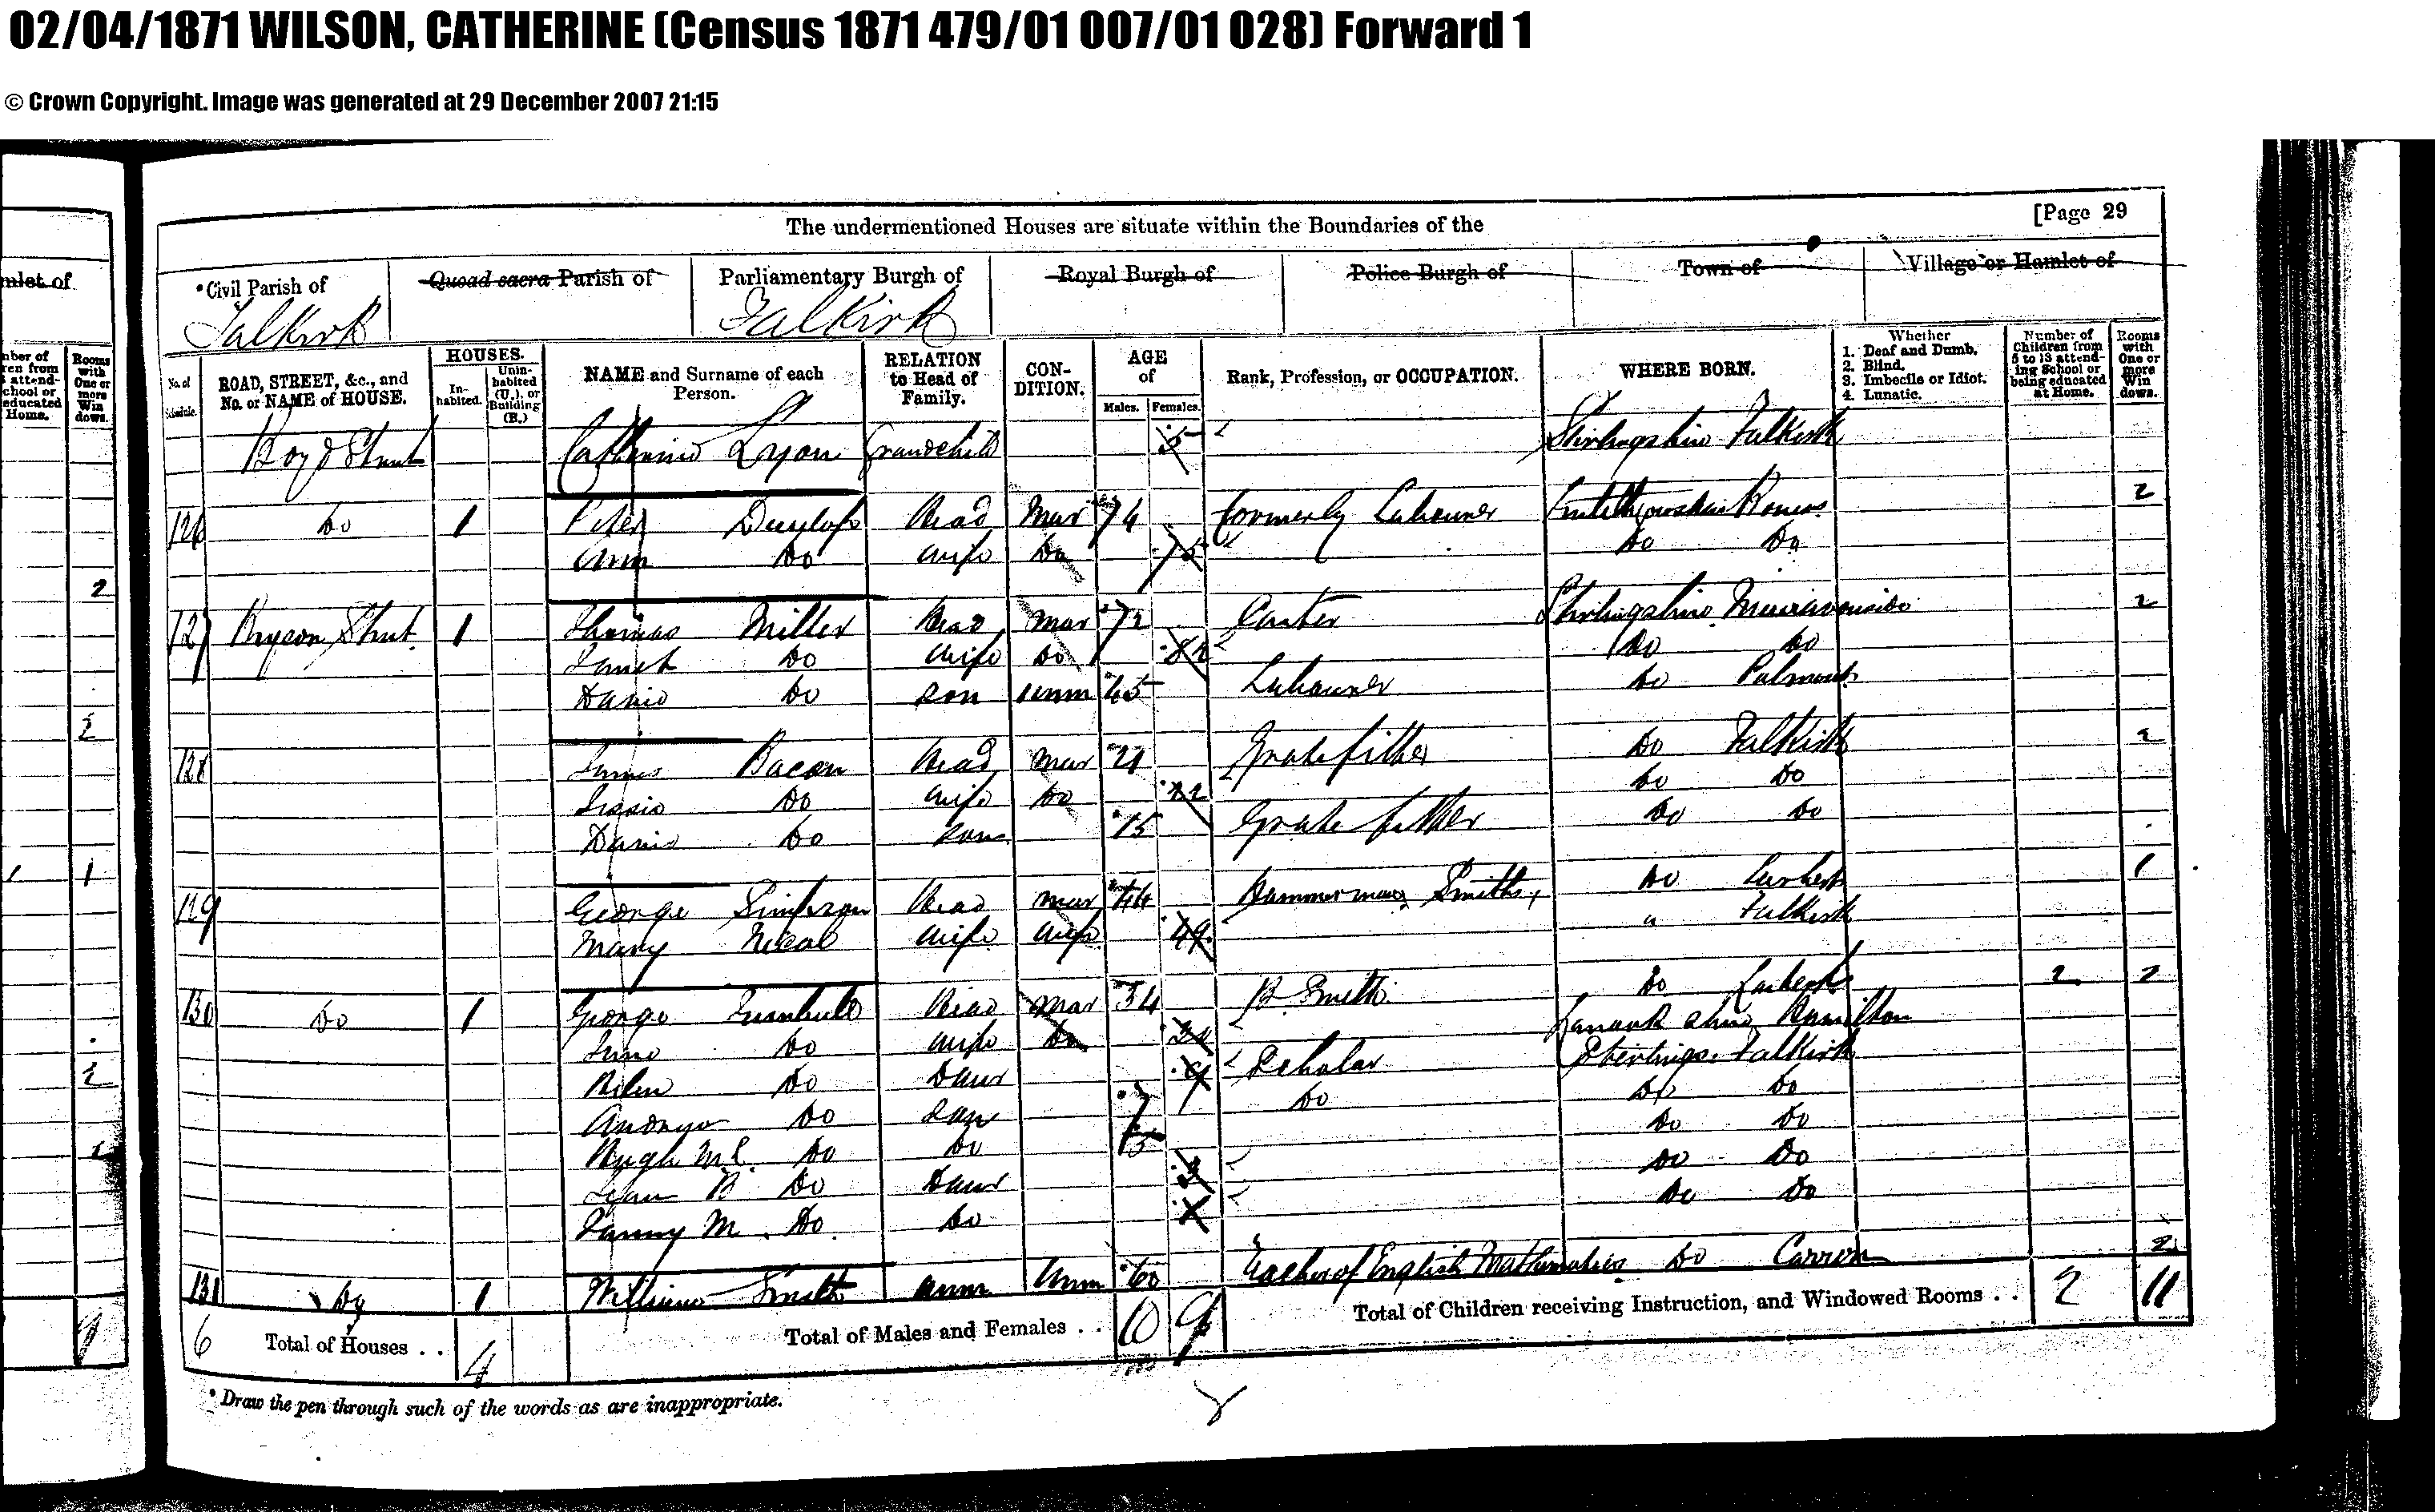 02/04/1871 WILSON, CATHERINE (Census 1871 479/01 007/01 028) Forward 1
© Crown Copyright. Image was generated at 29 December 2007 21:15
[Page 29
The undermentioned Houses are situate within the Boundaries of the
mlet of
*Civil Parish of
Quoad sacra Parish of
Parliamentary Burgh of
Royal Burgh of
Police Burgh of
Town of
Village or Hamlet of
Falkirk
Falkirk
No. of Schedule.
ROAD, STREET, &c., and No. or NAME of HOUSE.
HOUSES.
Inhabited.
Uninhabited (U.), or Building (B.)
NAME and Surname of each Person.
RELATION to Head of Family.
CONDITION.
AGE of
Males.
Females.
Rank, Profession, or OCCUPATION.
WHERE BORN.
Whether
1. Deaf and Dumb.
2. Blind.
3. Imbecile or Idiot.
4. Lunatic.
Number of Children from 5 to 13 attending School or being educated at Home.
Rooms with One or more Windows.
Boyd Street Catherine Lyon Grandchild 5 Stirlingshire Falkirk
126 Do 1 Peter Dunlop Head Mar 74 formerly Labourer Linlithgowshire 2
Ann Do Wife Do 75 Do Do
127 Bryson Street 1 Thomas Miller Head Mar 72 Carter Stirlingshire Muiravonside 2
Janet Do Wife Do 82 Do Do
David Do Son Unm 45 Labourer Do Polmont
128 James Bacon Head Mar 21 Grate fitter Do Falkirk 2
Do Wife Do 22 Do Do
David Do Son 15 Grate fitter Do Do
129 George Simpson Head Mar 44 Hammerman Smiths Do Larbert 1
Mary Nicol Wife Wife 49 " Falkirk
130 Do 1 George Turnbull Head Mar 34 B. Smith Do Larbert 2 2
Do Wife Do Lanarkshire Hamilton
Helen Do Daur 9 Scholar Stirlings. Falkirk
Andrew Do Son 7 Do Do Do
Hugh McL. Do Do 5 Do Do
Jean B Do Daur 3 Do Do
Fanny M. Do Do Do Do
131 Do 1 William Smith Unm Unm 60 Teacher of English Mathematics Do Carron 2
6 Total of Houses . . 4
Total of Males and Females . . 10 9
Total of Children receiving Instruction, and Windowed Rooms . . 2 11
* Draw the pen through such of the words as are inappropriate.